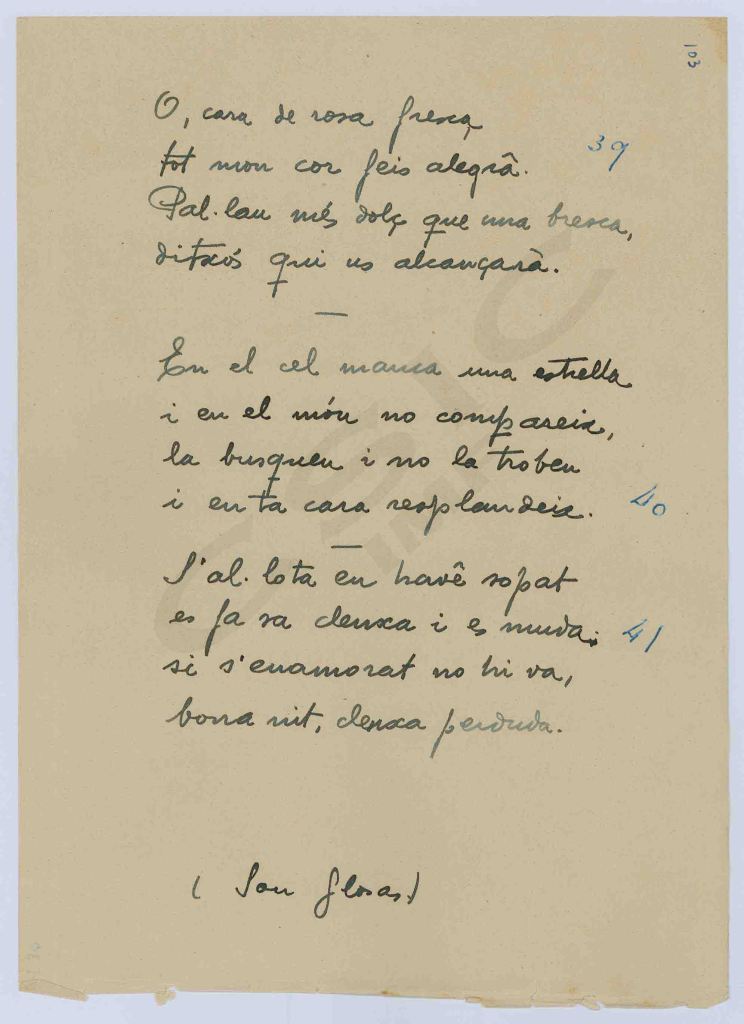 103
O, cara de rosa fresca
tot mon cor feis alegrâ. 39
Pal·lau més dolç que una bresca,
ditxós qui us alcançarà.
—
En el cel manca una estrella
i en el món no compareix,
la busquen i no la troben
i en ta cara resplandeix. 40
—
S'al·lota en havê sopat
es fa sa clenxa i es muda; 41
si s'enamorat no hi va,
bona nit, clenxa perduda.
(Son glosas)
CSIC